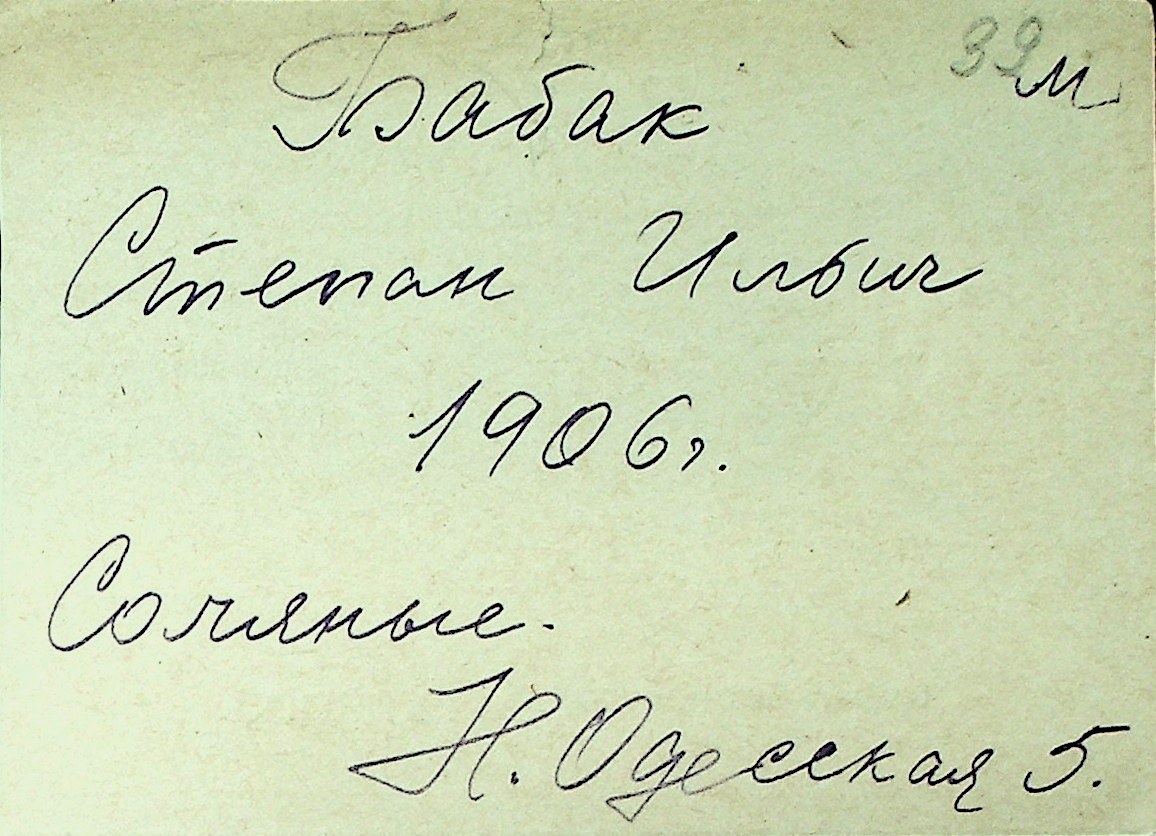 39 м
Бабак
Степан Ильич
1906 г.
Соляные.
Н. Одесская 5.